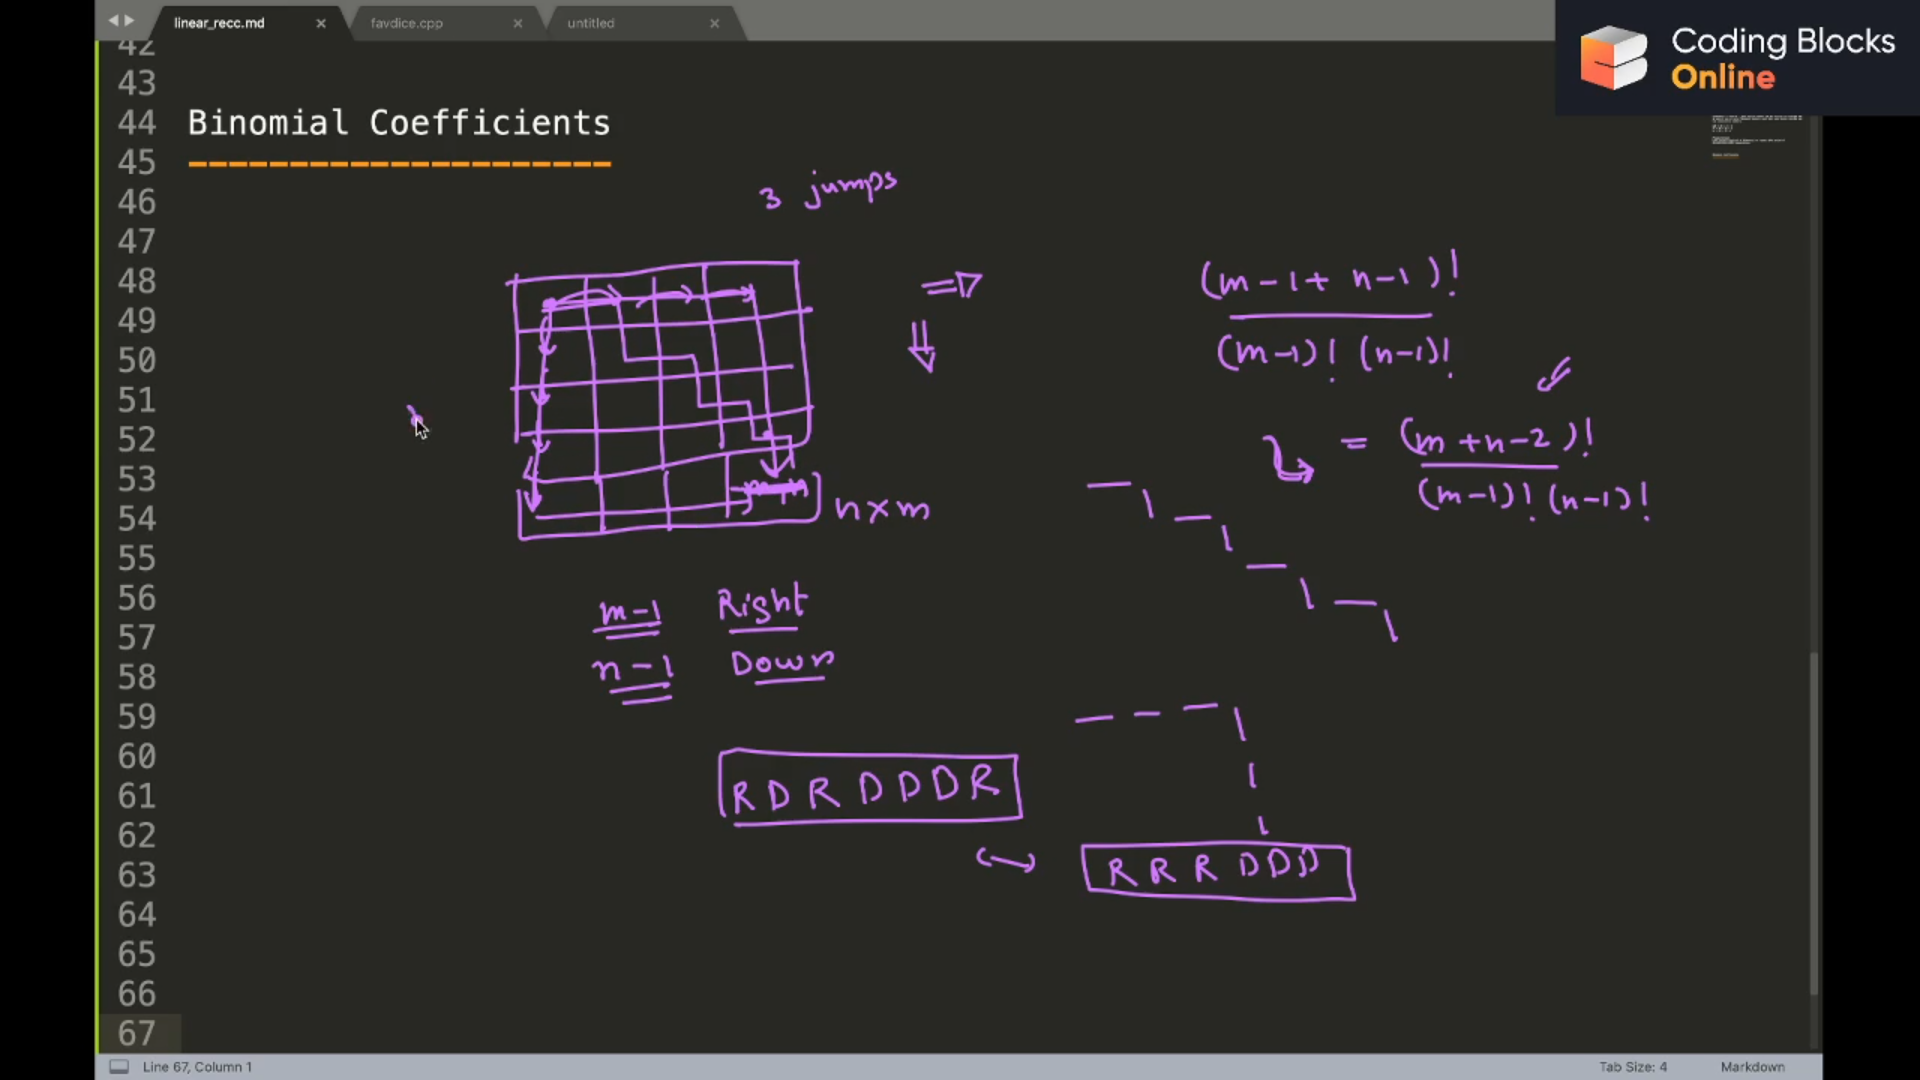 linear_recc.md
favdice.cpp
untitled
Coding Blocks
Online
42
43
44 Binomial Coefficients
45 ---------------------
46
47
48
49
50
51
52
53
54
55
56
57
58
59
60
61
62
63
64
65
66
67
3 jumps
(m-1+ n-1)!
(m-1)! (n-1)!
= (m+n-2)!
(m-1)! (n-1)!
n×m
m-1 Right
n-1 Down
RDRDDDR
RRRDDD
Line 67, Column 1
Tab Size: 4
Markdown